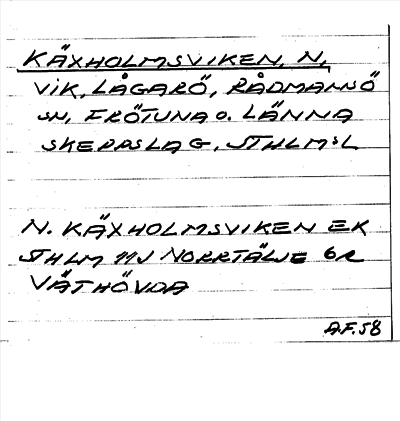 KÄXHOLMSVIKEN, N,
VIK, LÅGARÖ, RÅDMANSÖ
SN, FRÖTUNA O. LÄNNA
SKEPPSLAG, STHLM:L
N. KÄXHOLMSVIKEN EK
STHLM 11J NORRTÄLJE 6
VÄTHÖVDA
A.F. 58